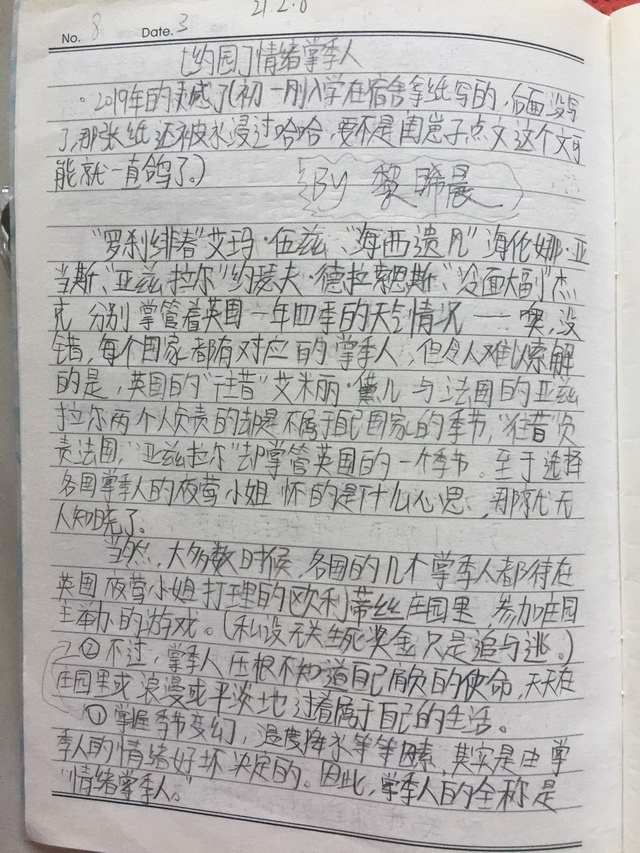 21.2.6
No. 8 Date. 3
[约园]情绪掌季人
·2019年的灵感了(初一刚入学在宿舍拿纸写的,后面没写
了,那张纸还被水浸过哈哈,要不是闺崽子点文这个文可
能就一直鸽了。)
By 黎晞晨
“罗刹绯春”艾玛·伍兹、“海西遗凡”海伦娜·亚
当斯、“亚兹拉尔”约瑟夫·德拉索恩斯、“冷面大副”杰
克 分别掌管着英国一年四季的天气情况——噢,没
错,每个国家都有对应的掌季人,但令人难以索解
的是,英国的“往昔”艾米丽·黛儿与法国的亚兹
拉尔两个人负责的却是不属于自己国家的季节,“往昔”负
责法国,“亚兹拉尔”却掌管英国的一个季节。至于选择
各国掌季人的夜莺小姐 怀的是什么心思,那就无
人知晓了。
当然,大多数时候,各国的几个掌季人都待在
英国夜莺小姐打理的欧利蒂丝庄园里,参加庄园
主举办的游戏。(私设无关生死奖金只是追与逃。)
②不过,掌季人压根不知道自己肩负的使命,天天在
庄园里或浪漫或平淡地过着属于自己的生活。
①掌握季节变幻,温度降水等等因素,其实是由掌
季人的情绪好坏决定的。因此,掌季人的全称是
“情绪掌季人。”